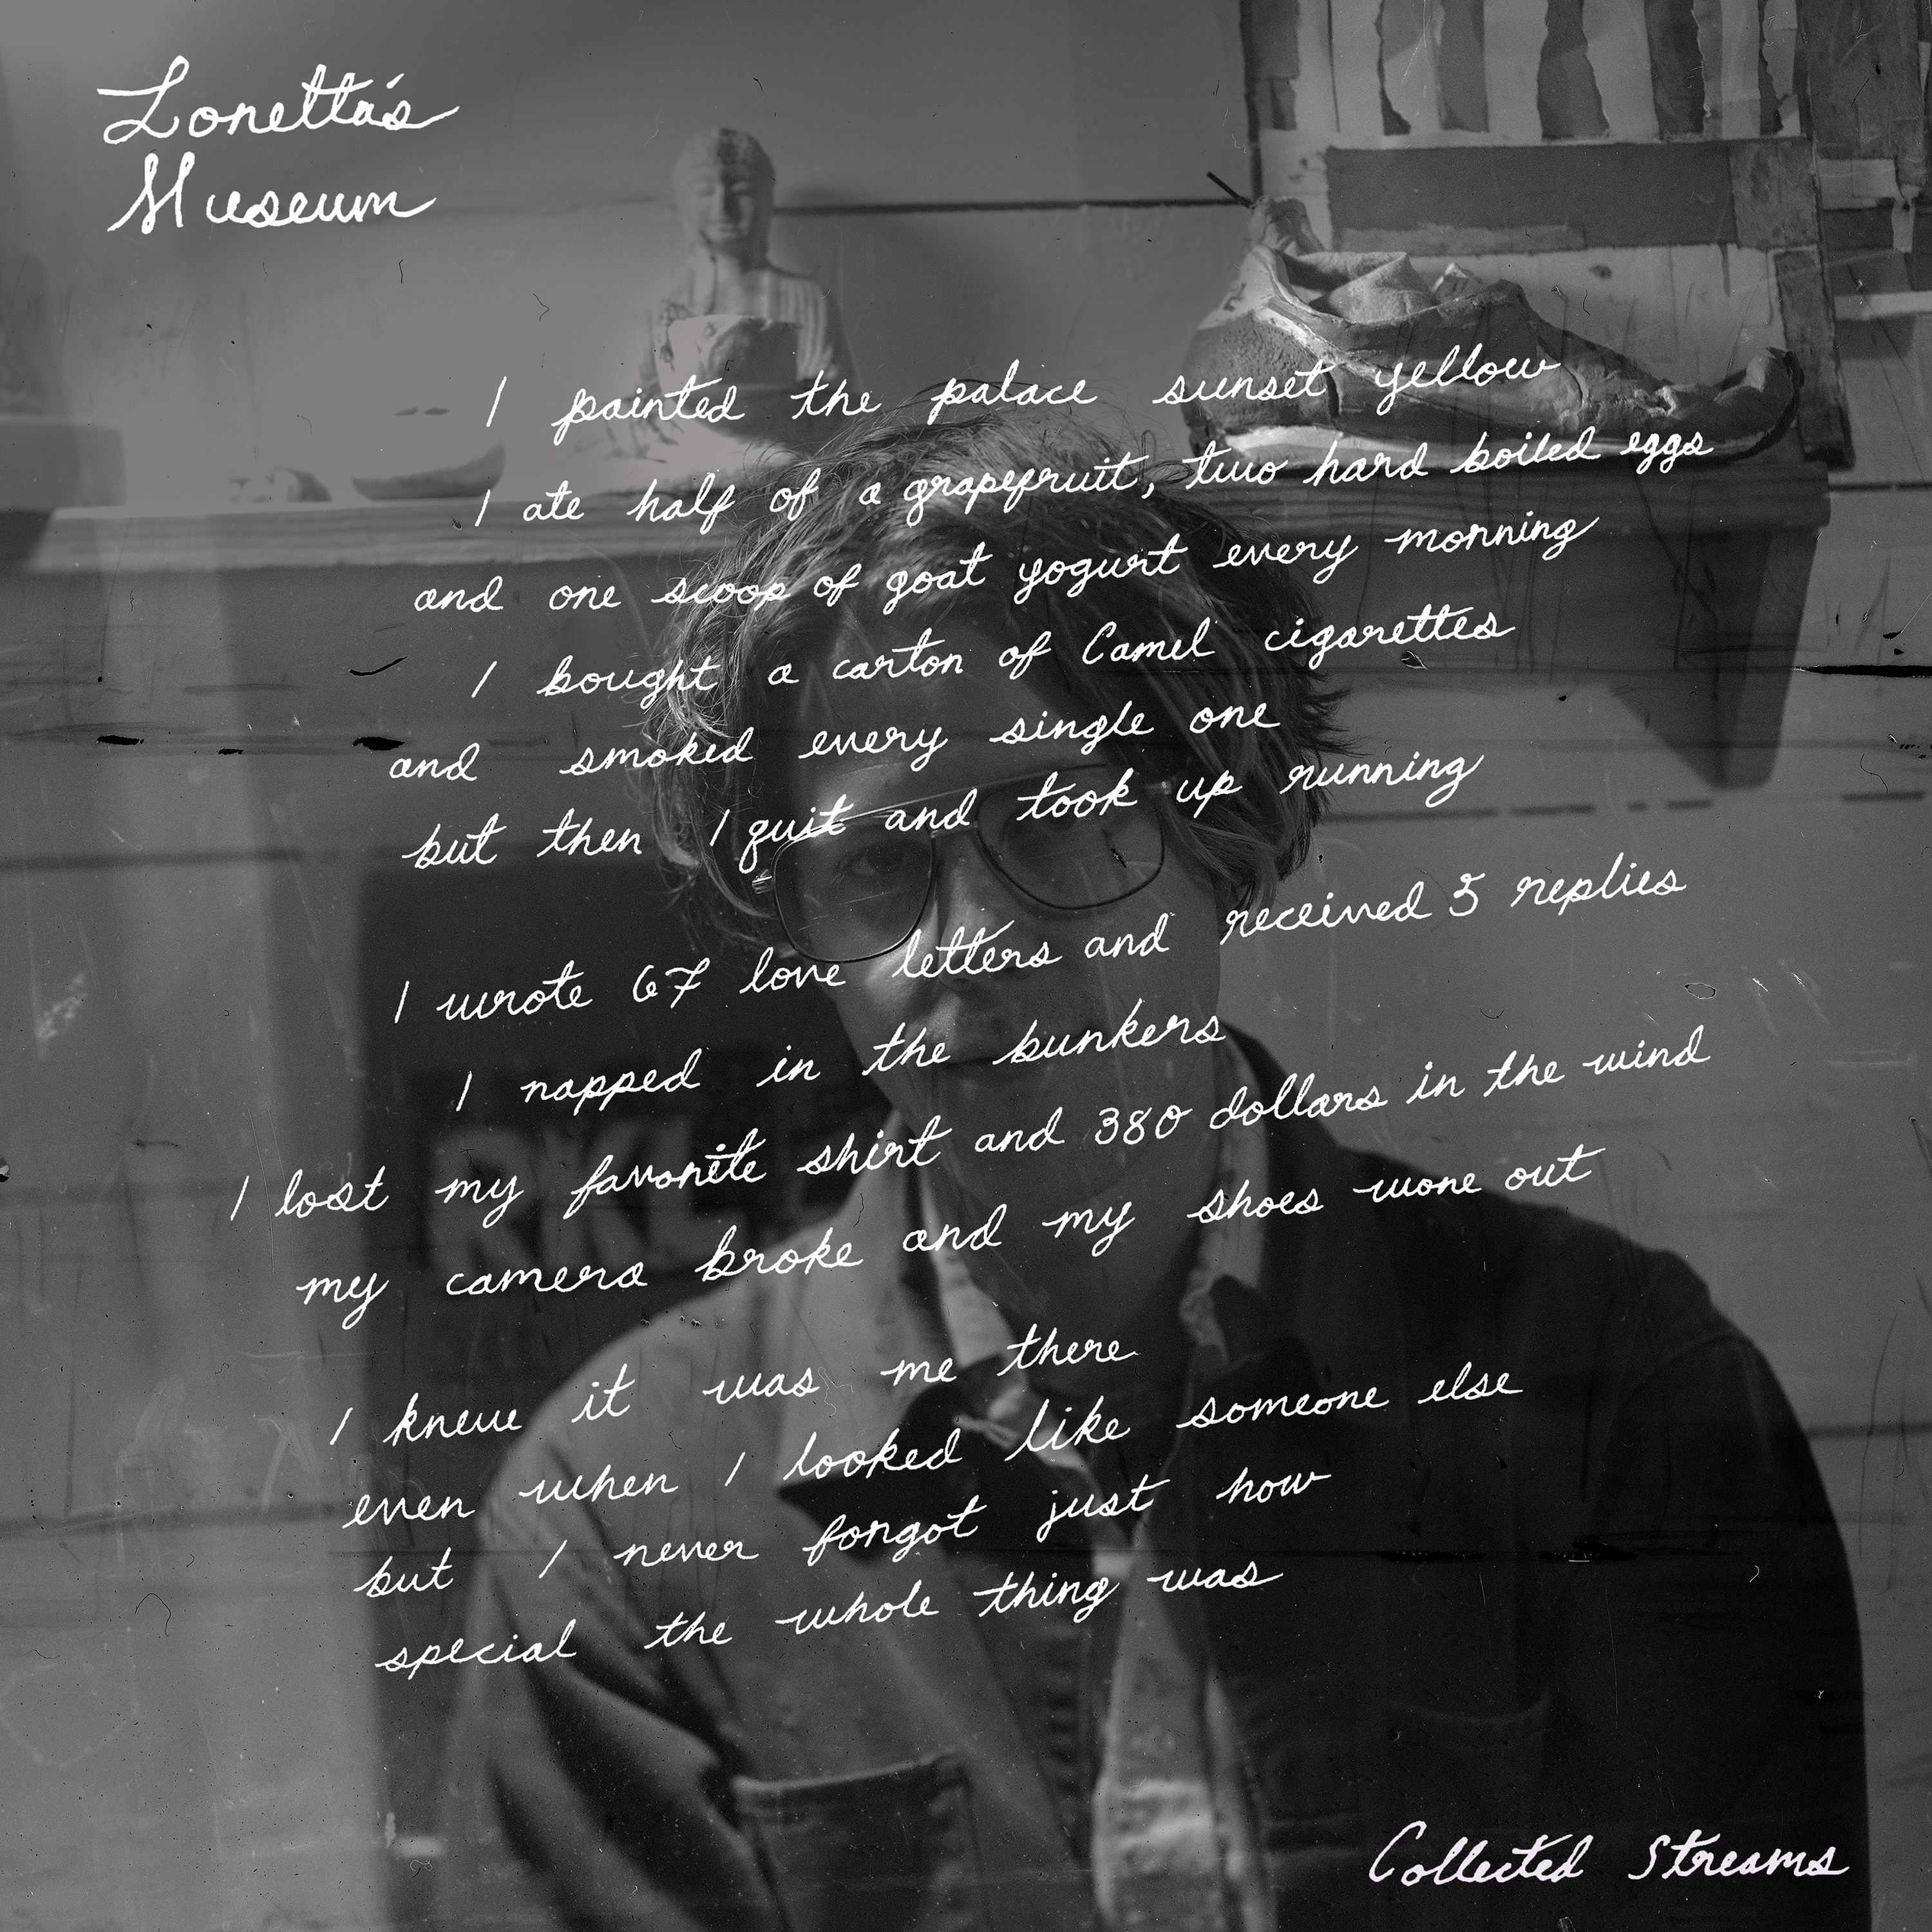 Lonetta's
Museum
I painted the palace sunset yellow
I ate half of a grapefruit, two hard boiled eggs
and one scoop of goat yogurt every morning
I bought a carton of Camel cigarettes
and smoked every single one
but then I quit and took up running
I wrote 67 love letters and received 5 replies
I napped in the bunkers
I lost my favorite shirt and 380 dollars in the wind
my camera broke and my shoes wore out
I knew it was me there
even when I looked like someone else
but I never forgot just how
special the whole thing was
Collected Streams